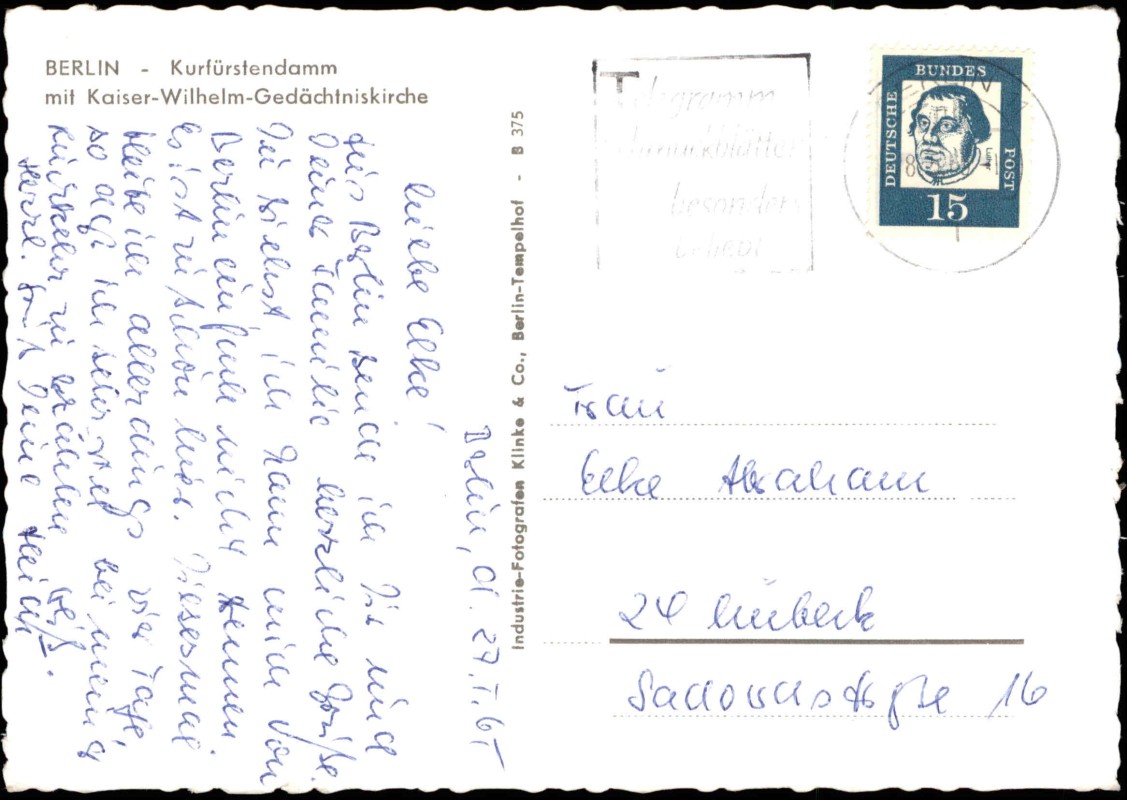 BERLIN - Kurfürstendamm
mit Kaiser-Wilhelm-Gedächtniskirche
Berlin, d. 27.I.65
Liebe Elke!
Aus Berlin sende ich Dir und
Deiner Familie herzliche Grüße.
Du siehst ich kann mich von
Berlin einfach nicht trennen
Es ist zu schön hier. Diesesmal
bleibe ich allerdings vier Tage,
so daß ich sehr viel bei meiner
Rückkehr zu erzählen weiß.
Herzl. Gruß Deine
Industrie-Fotografen Klinke & Co., Berlin-Tempelhof - B 375
Telegramm
Schmuckblätter
besonders
beliebt
BERLIN
DEUTSCHE
BUNDES
POST
Luther
15
Frau
Elke Abraham
24 Lübeck
Sadowastraße 16